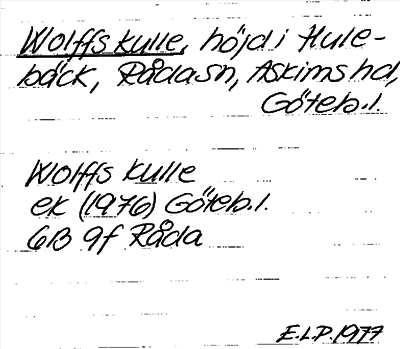 Wolffs kulle, höjd i Hule-
bäck, Råda sn, Askims hd,
Göteb. l.
Wolffs kulle
ek (1976) Göteb. l.
6B 9f Råda
E.L.P. 1977